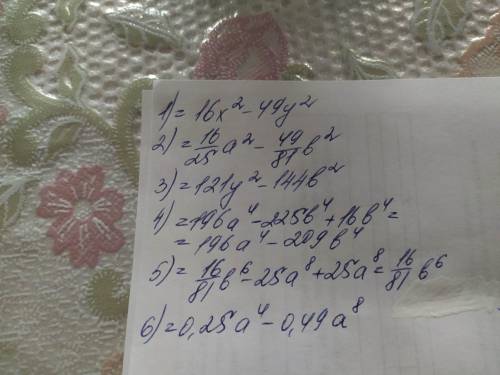 1) = 16x² - 49y²
2) = 16/25 a² - 49/81 b²
3) = 121y² - 144b²
4) = 196a⁴ - 225b⁴ + 16b⁴ =
= 196a⁴ - 209b⁴
5) = 16/81 b⁶ - 25a⁸ + 25a⁸ = 16/81 b⁶
6) = 0,25a⁴ - 0,49a⁸